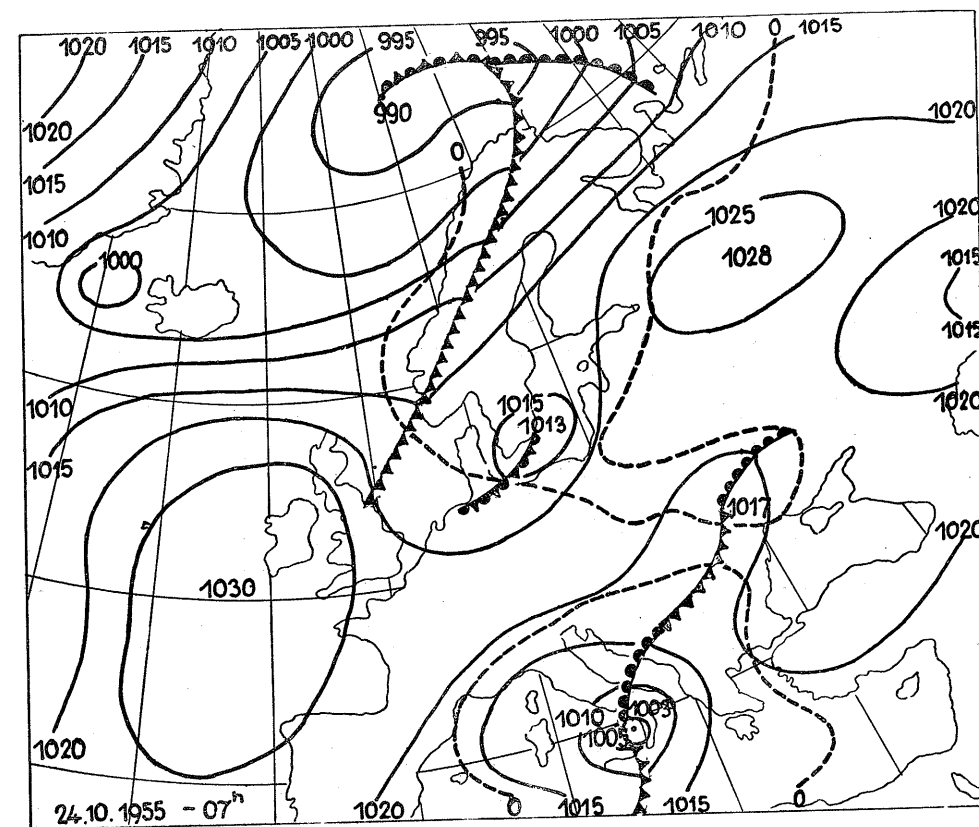 1020 1015 1010 1005 1000 995 995 1000 1005 1010 0 1015
990
1020
1020
0
1015
1025
1020
1010
1028
1000
1015
1015
1010
1015
1020
1013
1015
1017
1020
1030
1003
1010
1005
1020
24.10.1955 - 07h
1020 0 1015 1015 0